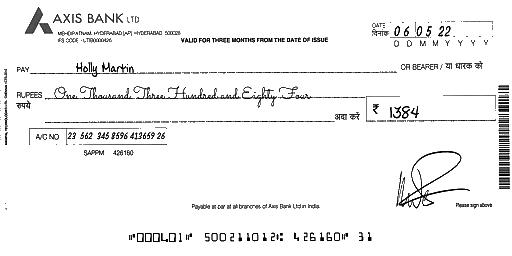 AXIS BANK LTD
MEHDIPATNAM, HYDERABAD [AP] HYDERABAD 500028
IFS CODE : UTIB0000426
VALID FOR THREE MONTHS FROM THE DATE OF ISSUE
DATE
दिनांक 06 05 22
D D M M Y Y Y Y
PAY Holly Martin OR BEARER / या धारक को
RUPEES One Thousand Three Hundred and Eighty Four
रुपये अदा करें ₹ 1384
A/C NO 23 562 345 8596 413659 26
SAPPM 426160
Payable at par at all branches of Axis Bank Ltd in India.
Please sign above
⑈000401⑈ 500211012⑆ 426160⑈ 31